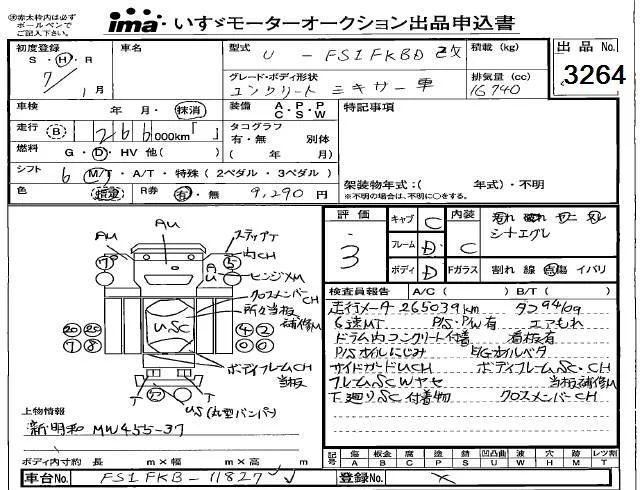 ※赤太枠内は必ず
ボールペンで
ご記入下さい。
ima いすゞモーターオークション出品申込書
初度登録
S・H・R
7/1月
車名
型式
U - FS1FKBD 改
積載 (kg)
出品 No.
3264
グレード・ボディ形状
コンクリート ミキサー車
排気量 (cc)
16740
車検 年 月・抹消
装備 A・P・P
C S W
特記事項
走行 B 266,000km「 」
タコグラフ
有・無 別体
( 年 月)
燃料 G・D・HV 他( )
シフト 6 M/T・A/T・特殊 (2ペダル・3ペダル)
架装物年式:( 年式)・不明
※不明の場合は、不明に○をする。
色 R券 有・無 9,290円
評価
3
キャブ C
内装 C
フレーム D
ボディ D
Fガラス 割れ 線 点傷 イバリ
シートエグレ
AU
AU
ステップT
内CH
ヒンジメM
クロスメンバーCH
所々当板
補修M
U.SC
ボディフレームCH
当板
20 25
7 8
4 2
0 0
T T
US (丸型バンパ)
検査員報告 A/C ( ) B/T ( )
走行メータ265039km タコ94109
6速MT P/S・P/W有 エアもれ
ドラム内コンクリート付着 看板有
P/Sオイルにじみ E/Gオイルベタ
サイドガードUCH ボディフレームSC・CH
フレームSCWヤセ 当板補修M
下廻りSC付着物 クロスメンバーCH
上物情報
新明和 MW455-37
ボディ内寸約 長 m×幅 m×高 m
記号 傷 A 板金 B 腐 C 塗 P 錆 S 凹凸曲 U 波 W 穴 H 跡 M レツ割 T
車台No. FS1FKB-11827
登録No.